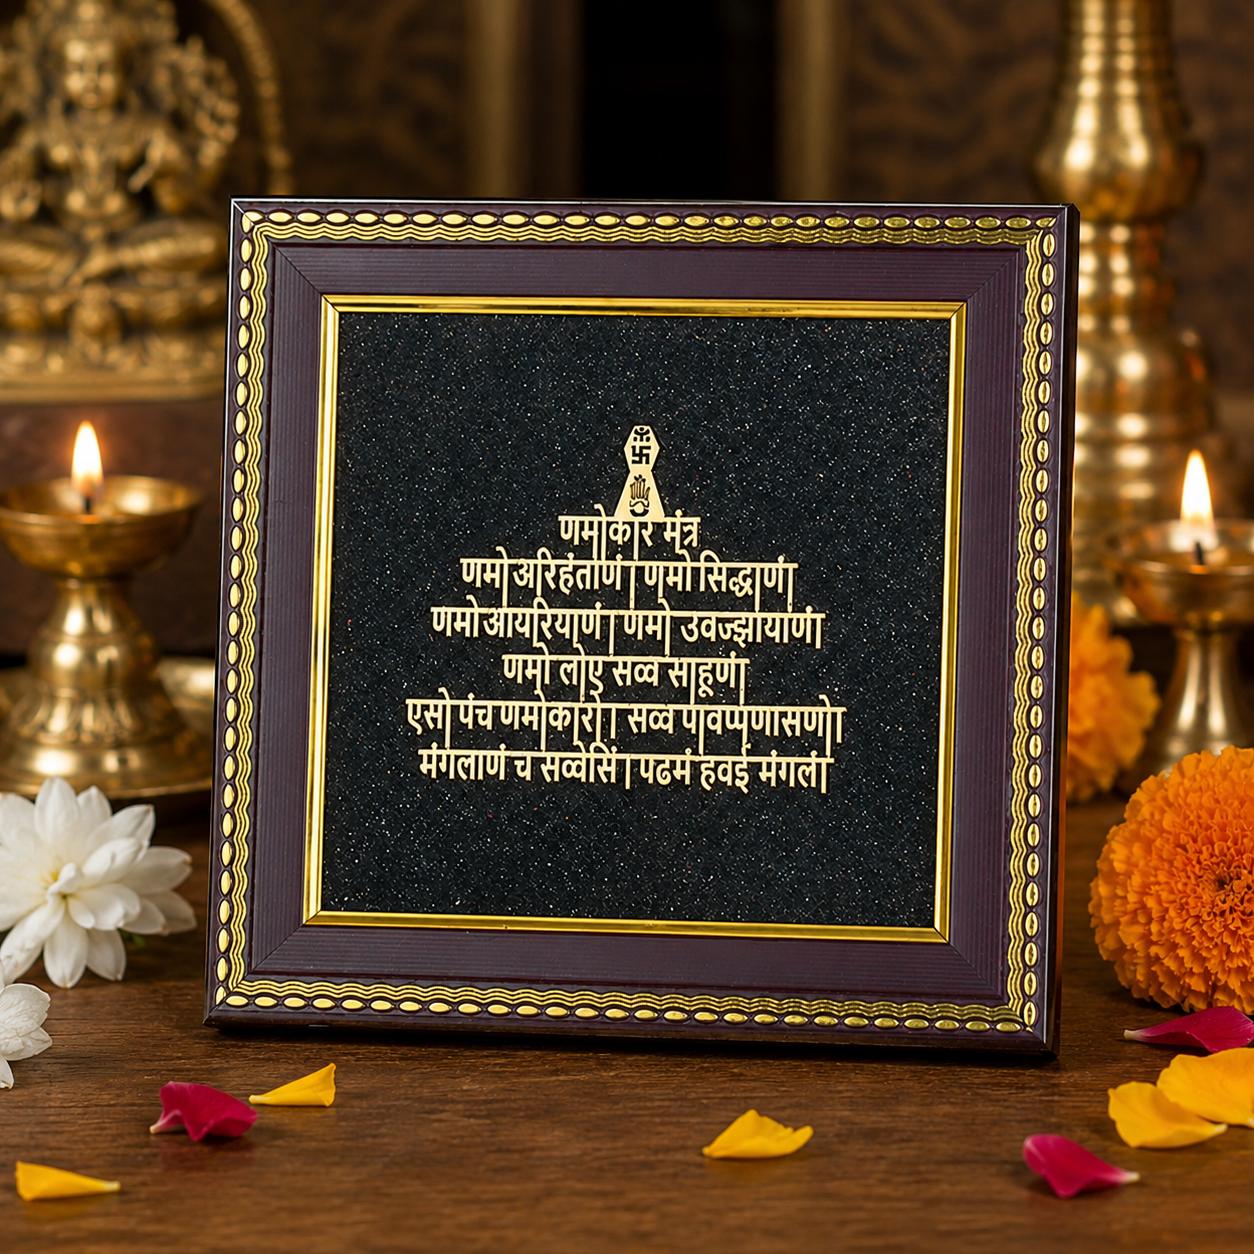 णमोकार मंत्र
णमो अरिहंताणं | णमो सिद्धाणं|
णमो आयरियाणं | णमो उवज्झायाणं|
णमो लोए सव्व साहूणं|
एसो पंच णमोकारो | सव्व पावप्पणासणो|
मंगलाणं च सव्वेसिं | पढमं हवई मंगलं|